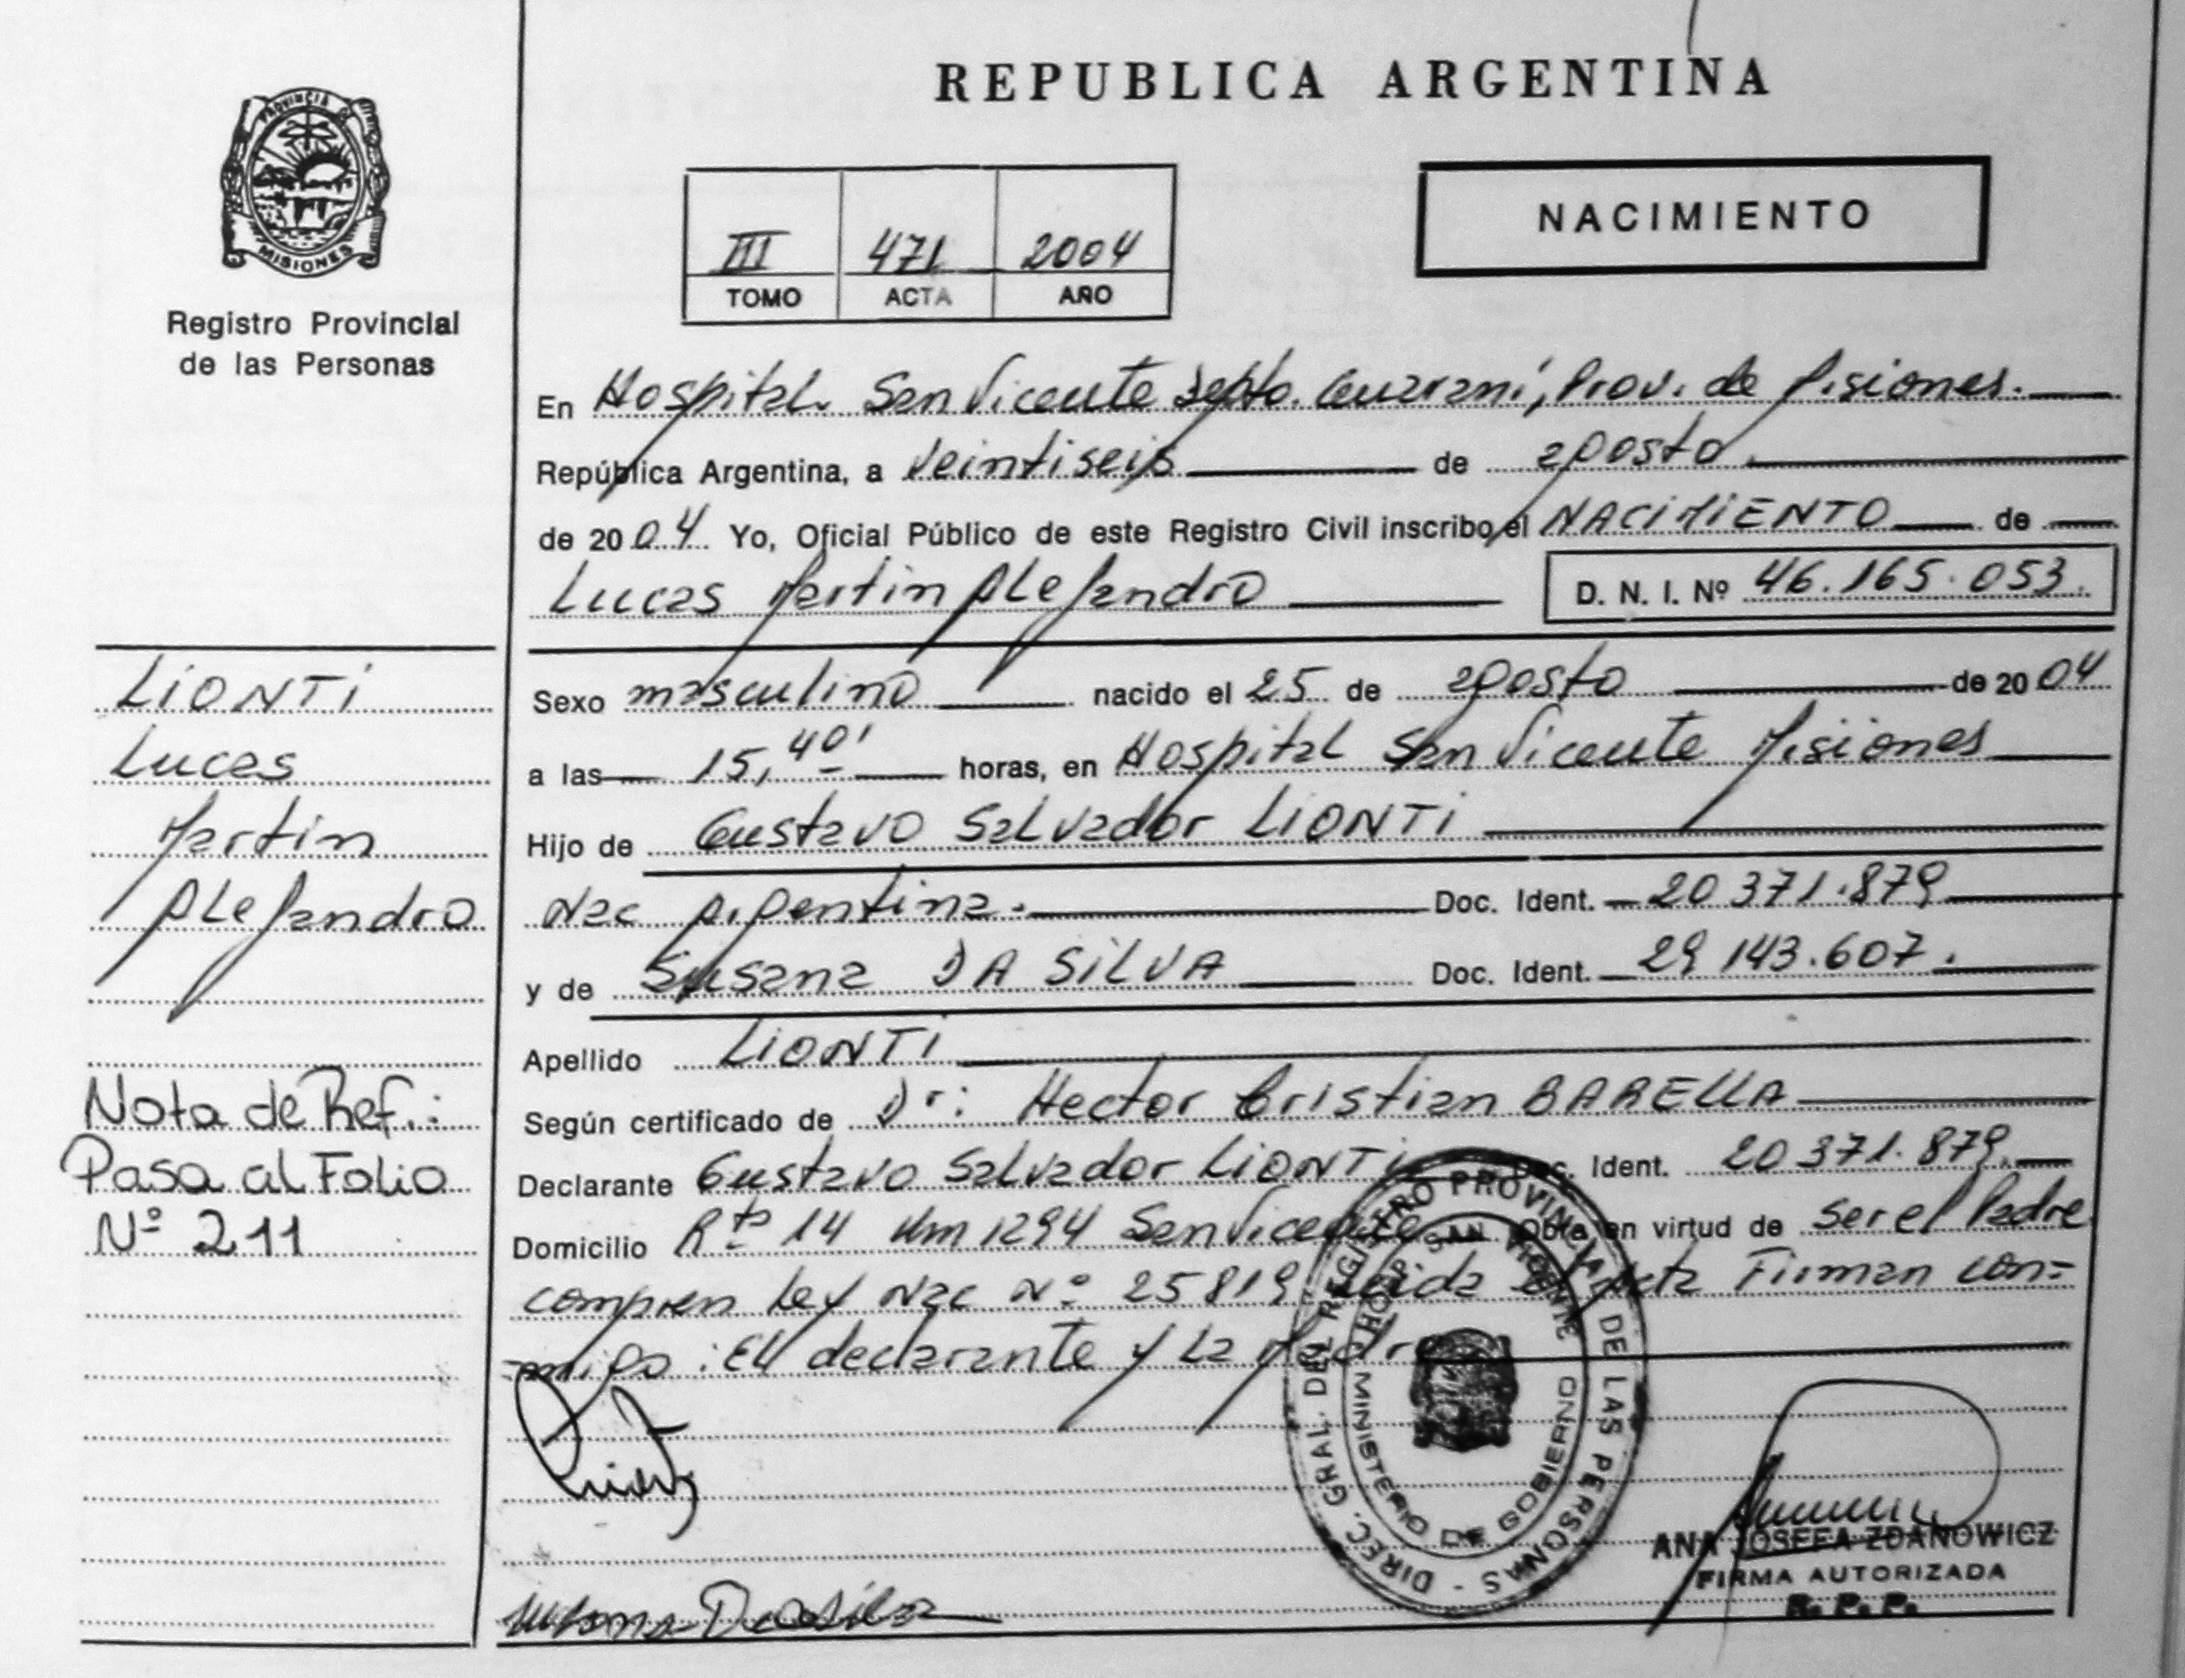 PROVINCIA DE
MISIONES
Registro Provincial
de las Personas
REPUBLICA ARGENTINA
III 471 2004
TOMO ACTA AÑO
NACIMIENTO
En Hospital San Vicente Depto. Guaraní, Prov. de Misiones.
República Argentina, a veintiseis de agosto
de 2004 Yo, Oficial Público de este Registro Civil inscribo el NACIMIENTO de
Lucas Martin Alejandro D. N. I. Nº 46.165.053.
Sexo masculino nacido el 25 de agosto de 2004
a las 15,40' horas, en Hospital San Vicente Misiones
Hijo de Gustavo Salvador LIONTI
Nac Argentina. Doc. Ident. 20 371.879
y de Susana DA SILVA Doc. Ident. 29 143.607.
Apellido LIONTI
Según certificado de Dr: Hector Cristian BARELLA
Declarante Gustavo Salvador LIONTI Doc. Ident. 20 371.879.
Domicilio Rta 14 Km 1294 San Vicente Obra en virtud de ser el Padre
Ley Nac Nº 25819 Leida el Acta Firman con=
migo: El declarante y La Madre
LIONTI
Lucas
Martin
Alejandro
Nota de Ref.:
Pasa al Folio
Nº 211
DIREC. GRAL. DEL REGISTRO PROVINCIAL DE LAS PERSONAS -
HOSP. SAN VICENTE
MINISTERIO DE GOBIERNO
Susana Da Silva
ANA JOSEFA ZDANOWICZ
FIRMA AUTORIZADA
R. P. P.